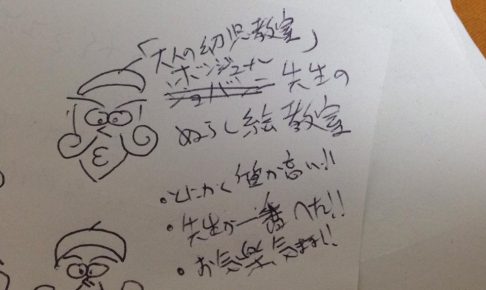 「大人の幼児教室」
ボンジュール
ジョバンニ先生の
ぬらし絵教室
・とにかく値が高い!!
・先生が一番へた!!
・お気楽気まま!!